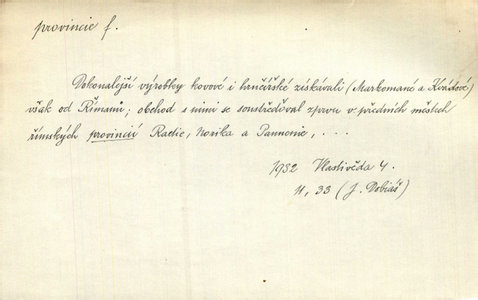 provincie f.
Dokonalejší výrobky kovové i hančířské získávali (Markomané a Kvádové)
však od Římanů; obchod s nimi se soustřeďoval zprvu v předních městech
římských provincií Raetie, Norika a Pannonie, . . .
1932 Vlastivěda 4.
II, 33 (J. Dobiáš)